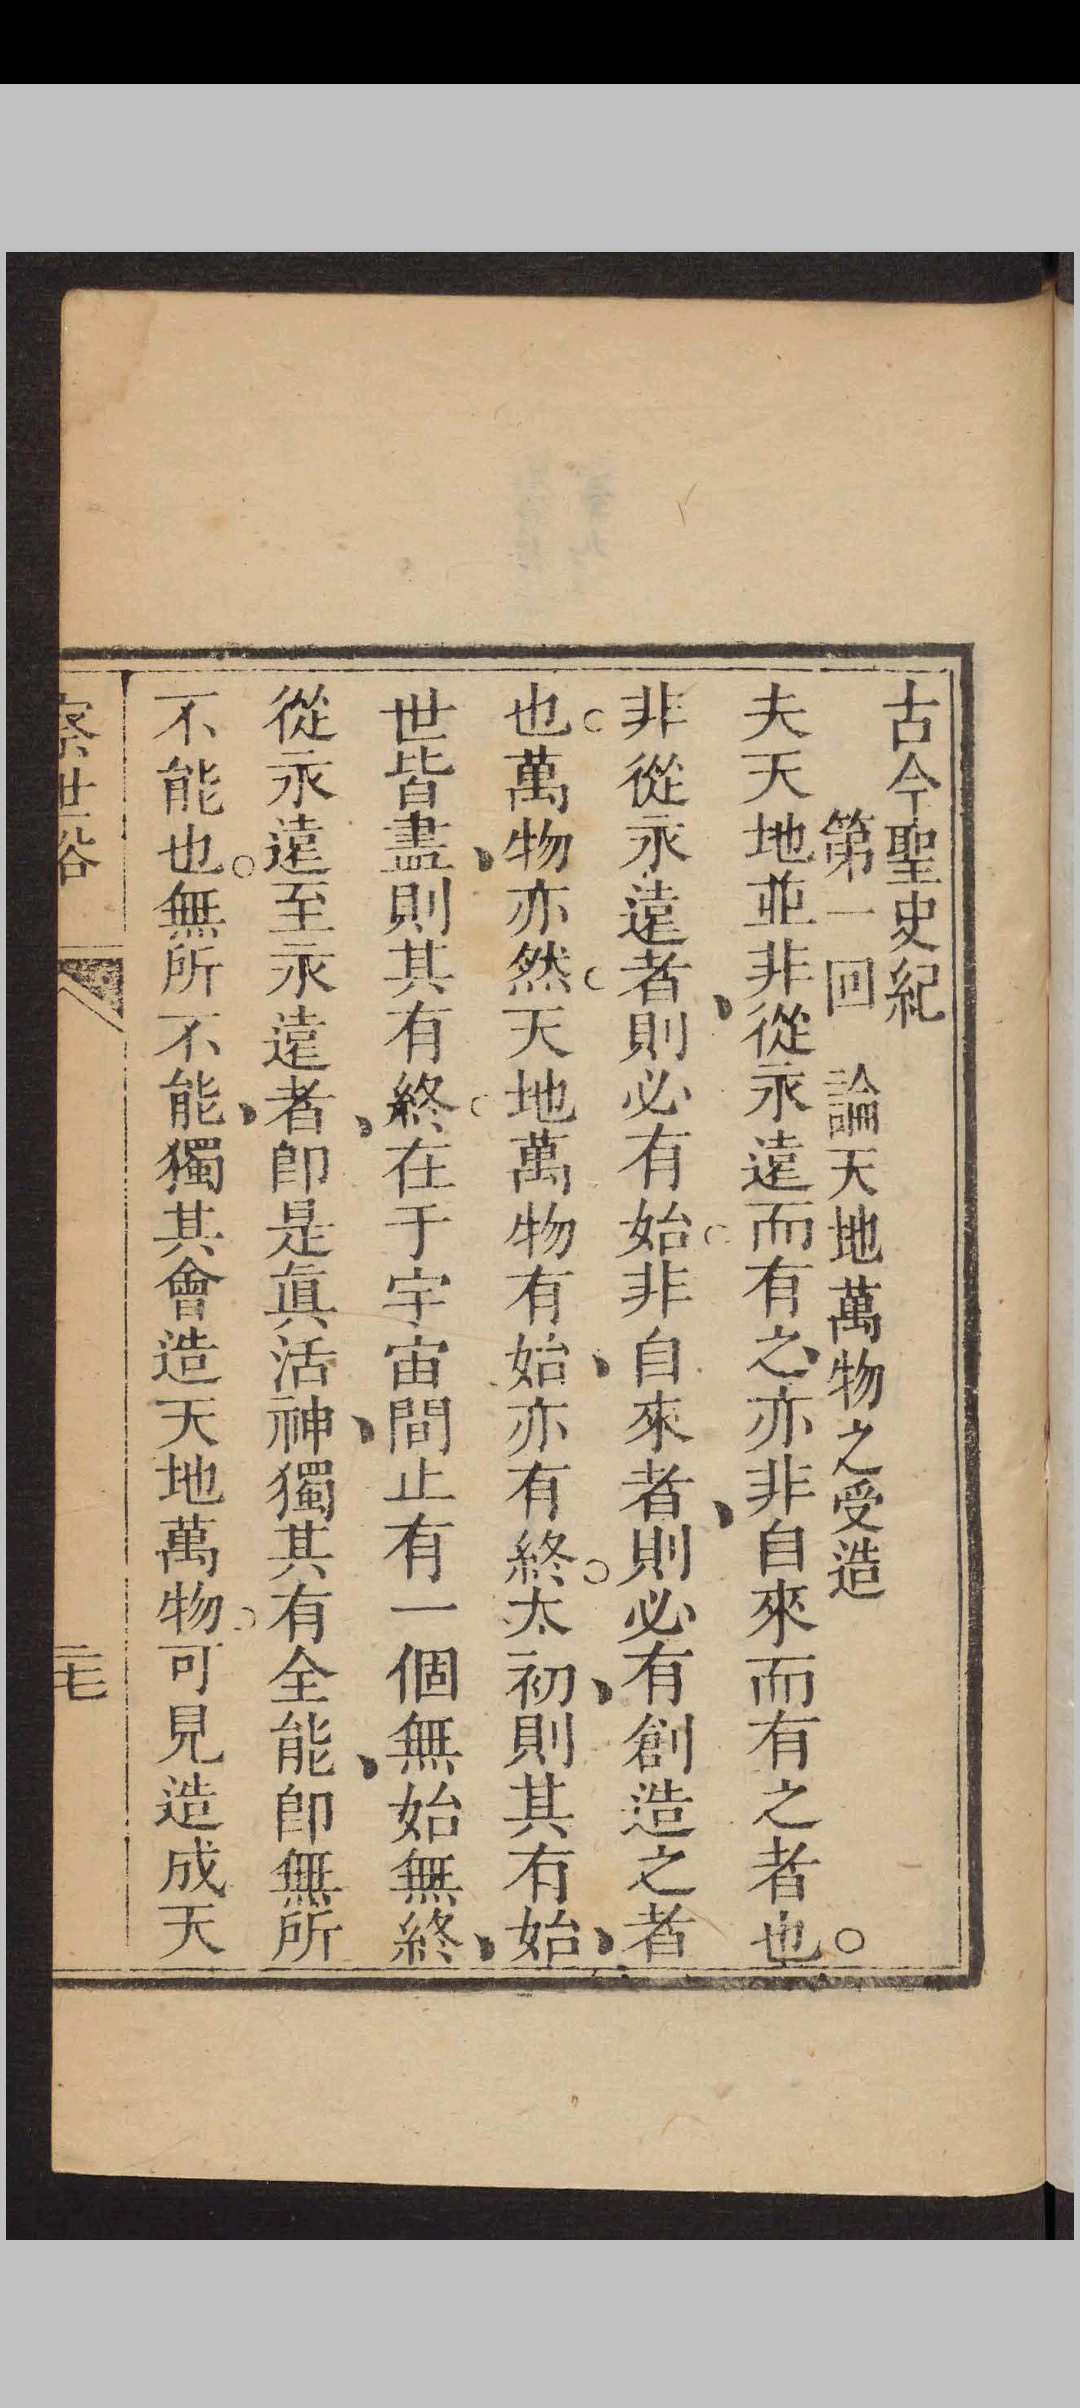 古今聖史紀
第一回　論天地萬物之受造
夫天地並非從永遠而有之、亦非自來而有之者也。
非從永遠者、則必有始。非自來者、則必有創造之者
也。萬物亦然。天地萬物有始、亦有終。太初、則其有始、
世皆盡、則其有終。在于宇宙間止有一個無始無終、
從永遠至永遠者、即是真活神、獨其有全能、即無所
不能也。無所不能、獨其會造天地萬物。可見造成天
察世俗